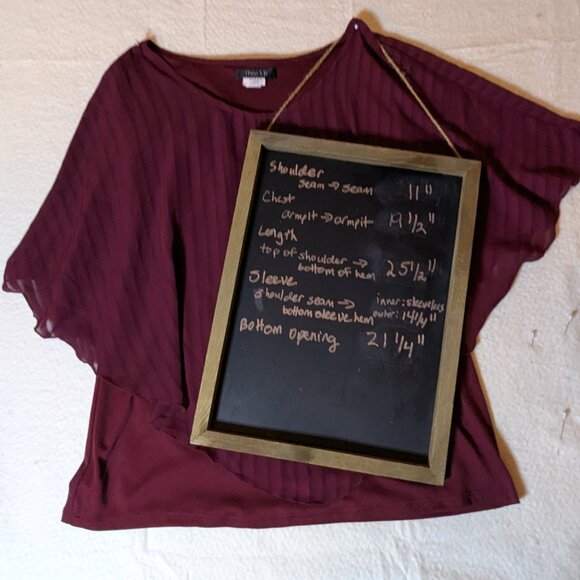 Shoulder
seam → seam 11"
Chest
armpit → armpit 19 1/2"
Length
top of shoulder →
bottom of hem 25 1/2"
Sleeve
shoulder seam → inner: sleeveless
bottom sleeve hem outer: 14 1/4"
Bottom Opening 21 1/4"